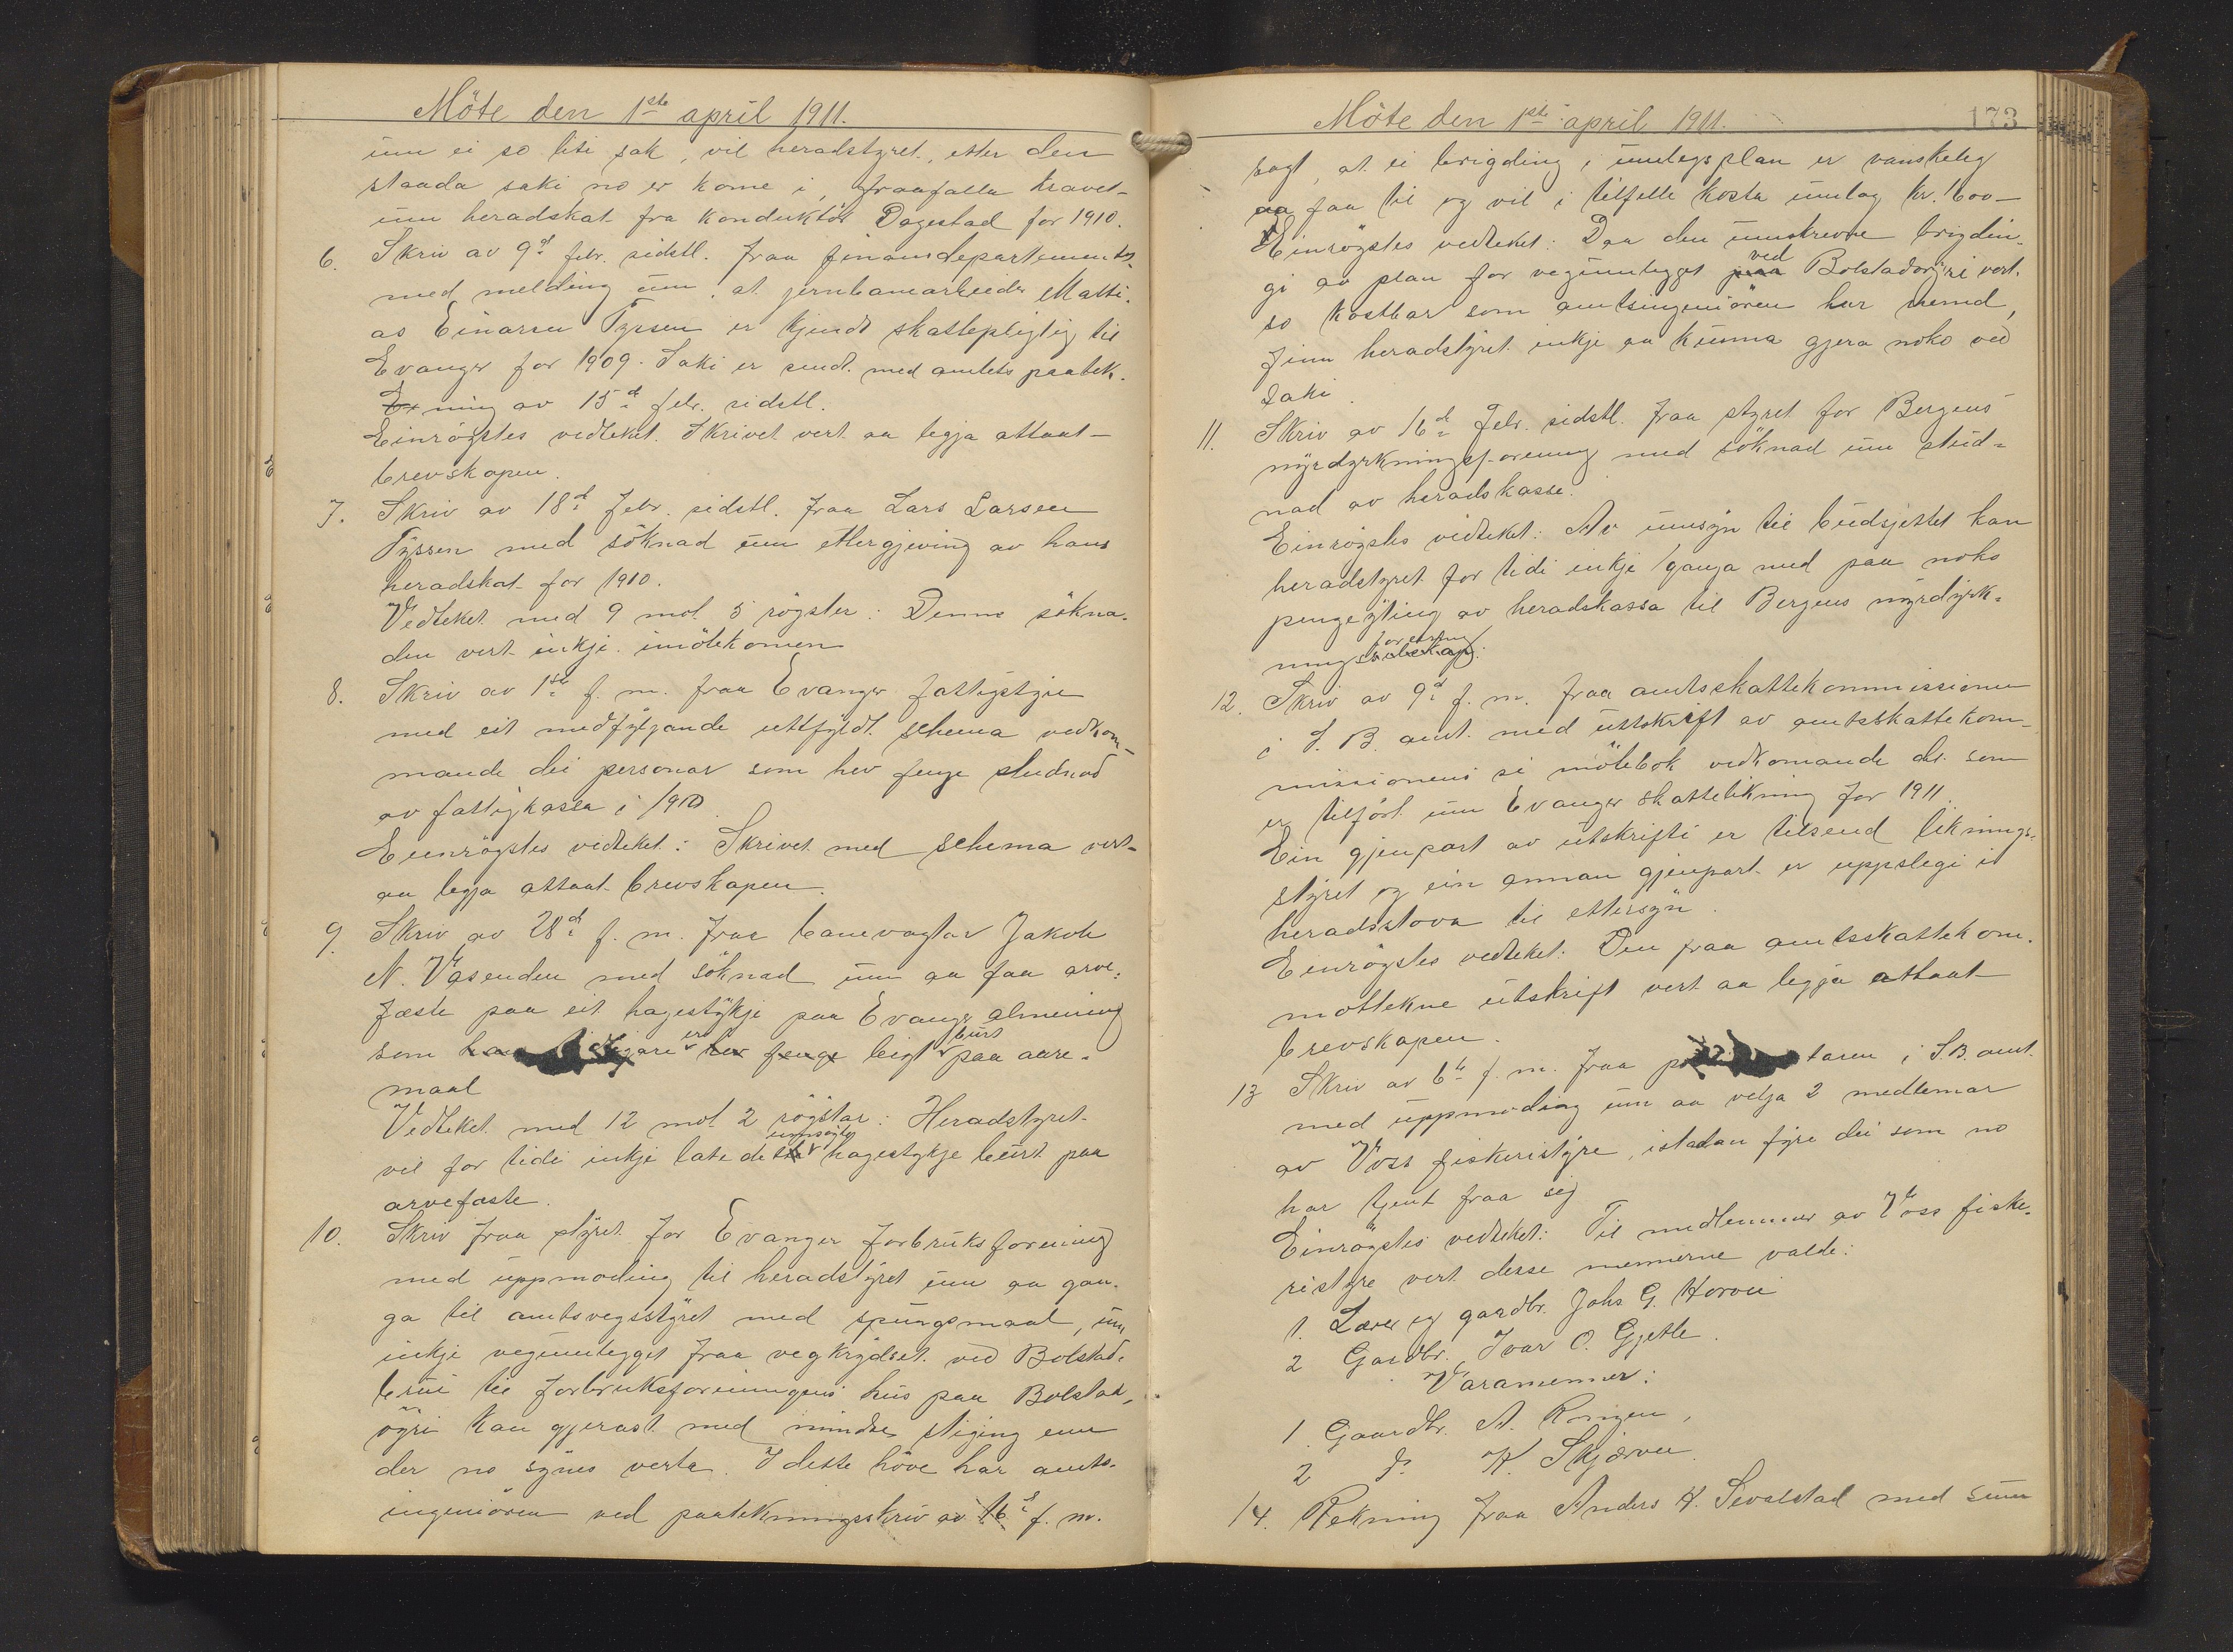 Möte den 1ste april 1911.
um ei so liti sak, vil heradstyret, etter den
staada saki no er kome i, fraafalla kravet
um heradskat fra konduktör Dagestad for 1910.
6. Skriv av 9d febr. sidstl. fraa finansdepartementet
med melding um, at jernbanearbeider Matti-
as Einarsen Tyssen er kjendt skattepligtig til
Evanger for 1909. Saki er sendt med amtets paatek-
ning av 15d febr. sidstl.
Einrögstes vedteket. Skrivet vert aa legja attaat
brevskapen.
7. Skriv av 18d febr. sidstl. fraa Lars Larsen
Tyssen med söknad um ettergjeving av hans
heradskat for 1910.
Vedteket med 9 mot 5 rögster: Denne sökna-
den vert inkje imötekomen
8. Skriv av 1ste f. m. fraa Evanger fattigstyre
med eit medfylgjande utfyldt schema vedkom-
mande dei personar som hev fenge studnad
av fattigkassa i 1910
Einrögstes vedteket: Skrivet med schema vert
aa legja attaat brevskapen.
9. Skriv av 28d f. m. fraa banevagtar Jakob
N. Vasenden med söknad um aa faa arve-
fæste paa eit hagestykje paa Evanger almening
som er leigt burt paa aare-
maal
Vedteket med 12 mot 2 rögstar: Heradstyret
vil for tidi inkje late det umsøgte hagestykje burt paa
arvefæste.
10. Skriv fraa styret for Evanger forbruksforening
med uppmoding til heradstyret um aa gan-
ga til amtsvegsstyret med spursmaal, um
inkje vegumlegget fraa vegkrydset ved Bolstad-
brui til forbruksforeningens hus paa Bolstad-
øyri kan gjerast med mindre stiging enn
der no synes verta. I dette höve har amts-
ingeniören ved paatekningsskriv av 16d f. m.
Möte den 1ste april 1911.
173
sagt, at ei brigding i umlegsplan er vanskeleg
aa faa til og vil i tilfelle kosta umlag kr. 1600 –
Einrögstes vedteket: Daa den umskrevne brigdin-
gi av plan for vegumlegget ved Bolstadøyri vert
so kostbar som amtsingeniören har nemnd,
finn heradstyret inkje aa kunna gjera noko ved
saki.
11. Skriv av 16d febr. sidstl. fraa styret for Bergens
myrdyrkningsforening med söknad um stud-
nad av heradskasse.
Einrögstes vedteket: Av umsyn til budsjettet kan
heradstyret for tidi inkje ganga med paa noko
pengeyting av heradskassa til Bergens myrdyrk-
nings forening.
12. Skriv av 9d f. m. fraa amtsskattekommissionen
i S. B. amt. med utskrift av amtsskattekom-
missionens si mötebok vedkomande det som
er tilfört um Evanger skattelikning for 1911.
Ein gjenpart av utskrifti er tilsend liknings-
styret og ein annan gjenpart er uppslegi i
heradsstova til ettersyn.
Einrögstes vedteket: Den fraa amtsskattekom.
mottekne utskrift vert aa legja attaat
brevskapen.
13 Skriv av 6te f. m. fraa taren i S. B. amt
med uppmoding um aa velja 2 medlemar
av Voss fiskeristyre, istadan fyre dei som no
har tjent fraa sig
Einrögstes vedteket: Til medlemmer av Voss fiske-
ristyre vert desse mennerne valde:
1. Lærer og gaardbr. Johs G. Horvei
2 Gardbr. Ivar O. Gjelle.
Varamenner:
1. Gaardbr. A. Ringen,
2 do K. Skjerven
14. Rekning fraa Anders K. Sevalstad med sum